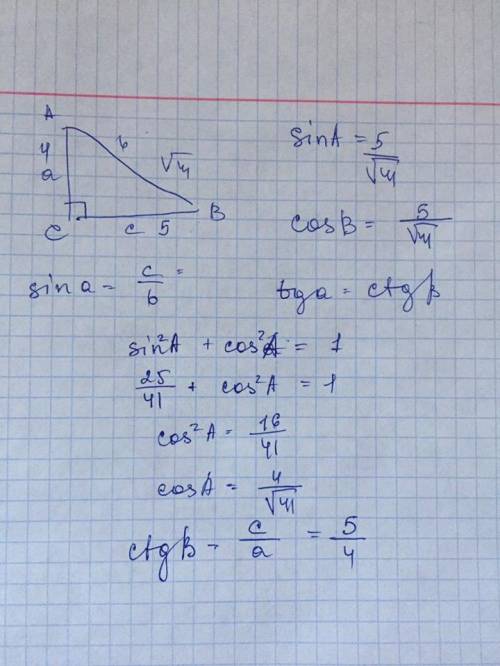 A
4
a
C
в
√41
c 5
B
sinA = 5/√41
cosB = 5/√41
sin a = c/в =
tg a = ctg β
sin²A + cos²A = 1
25/41 + cos²A = 1
cos²A = 16/41
cosA = 4/√41
ctg β = c/a = 5/4